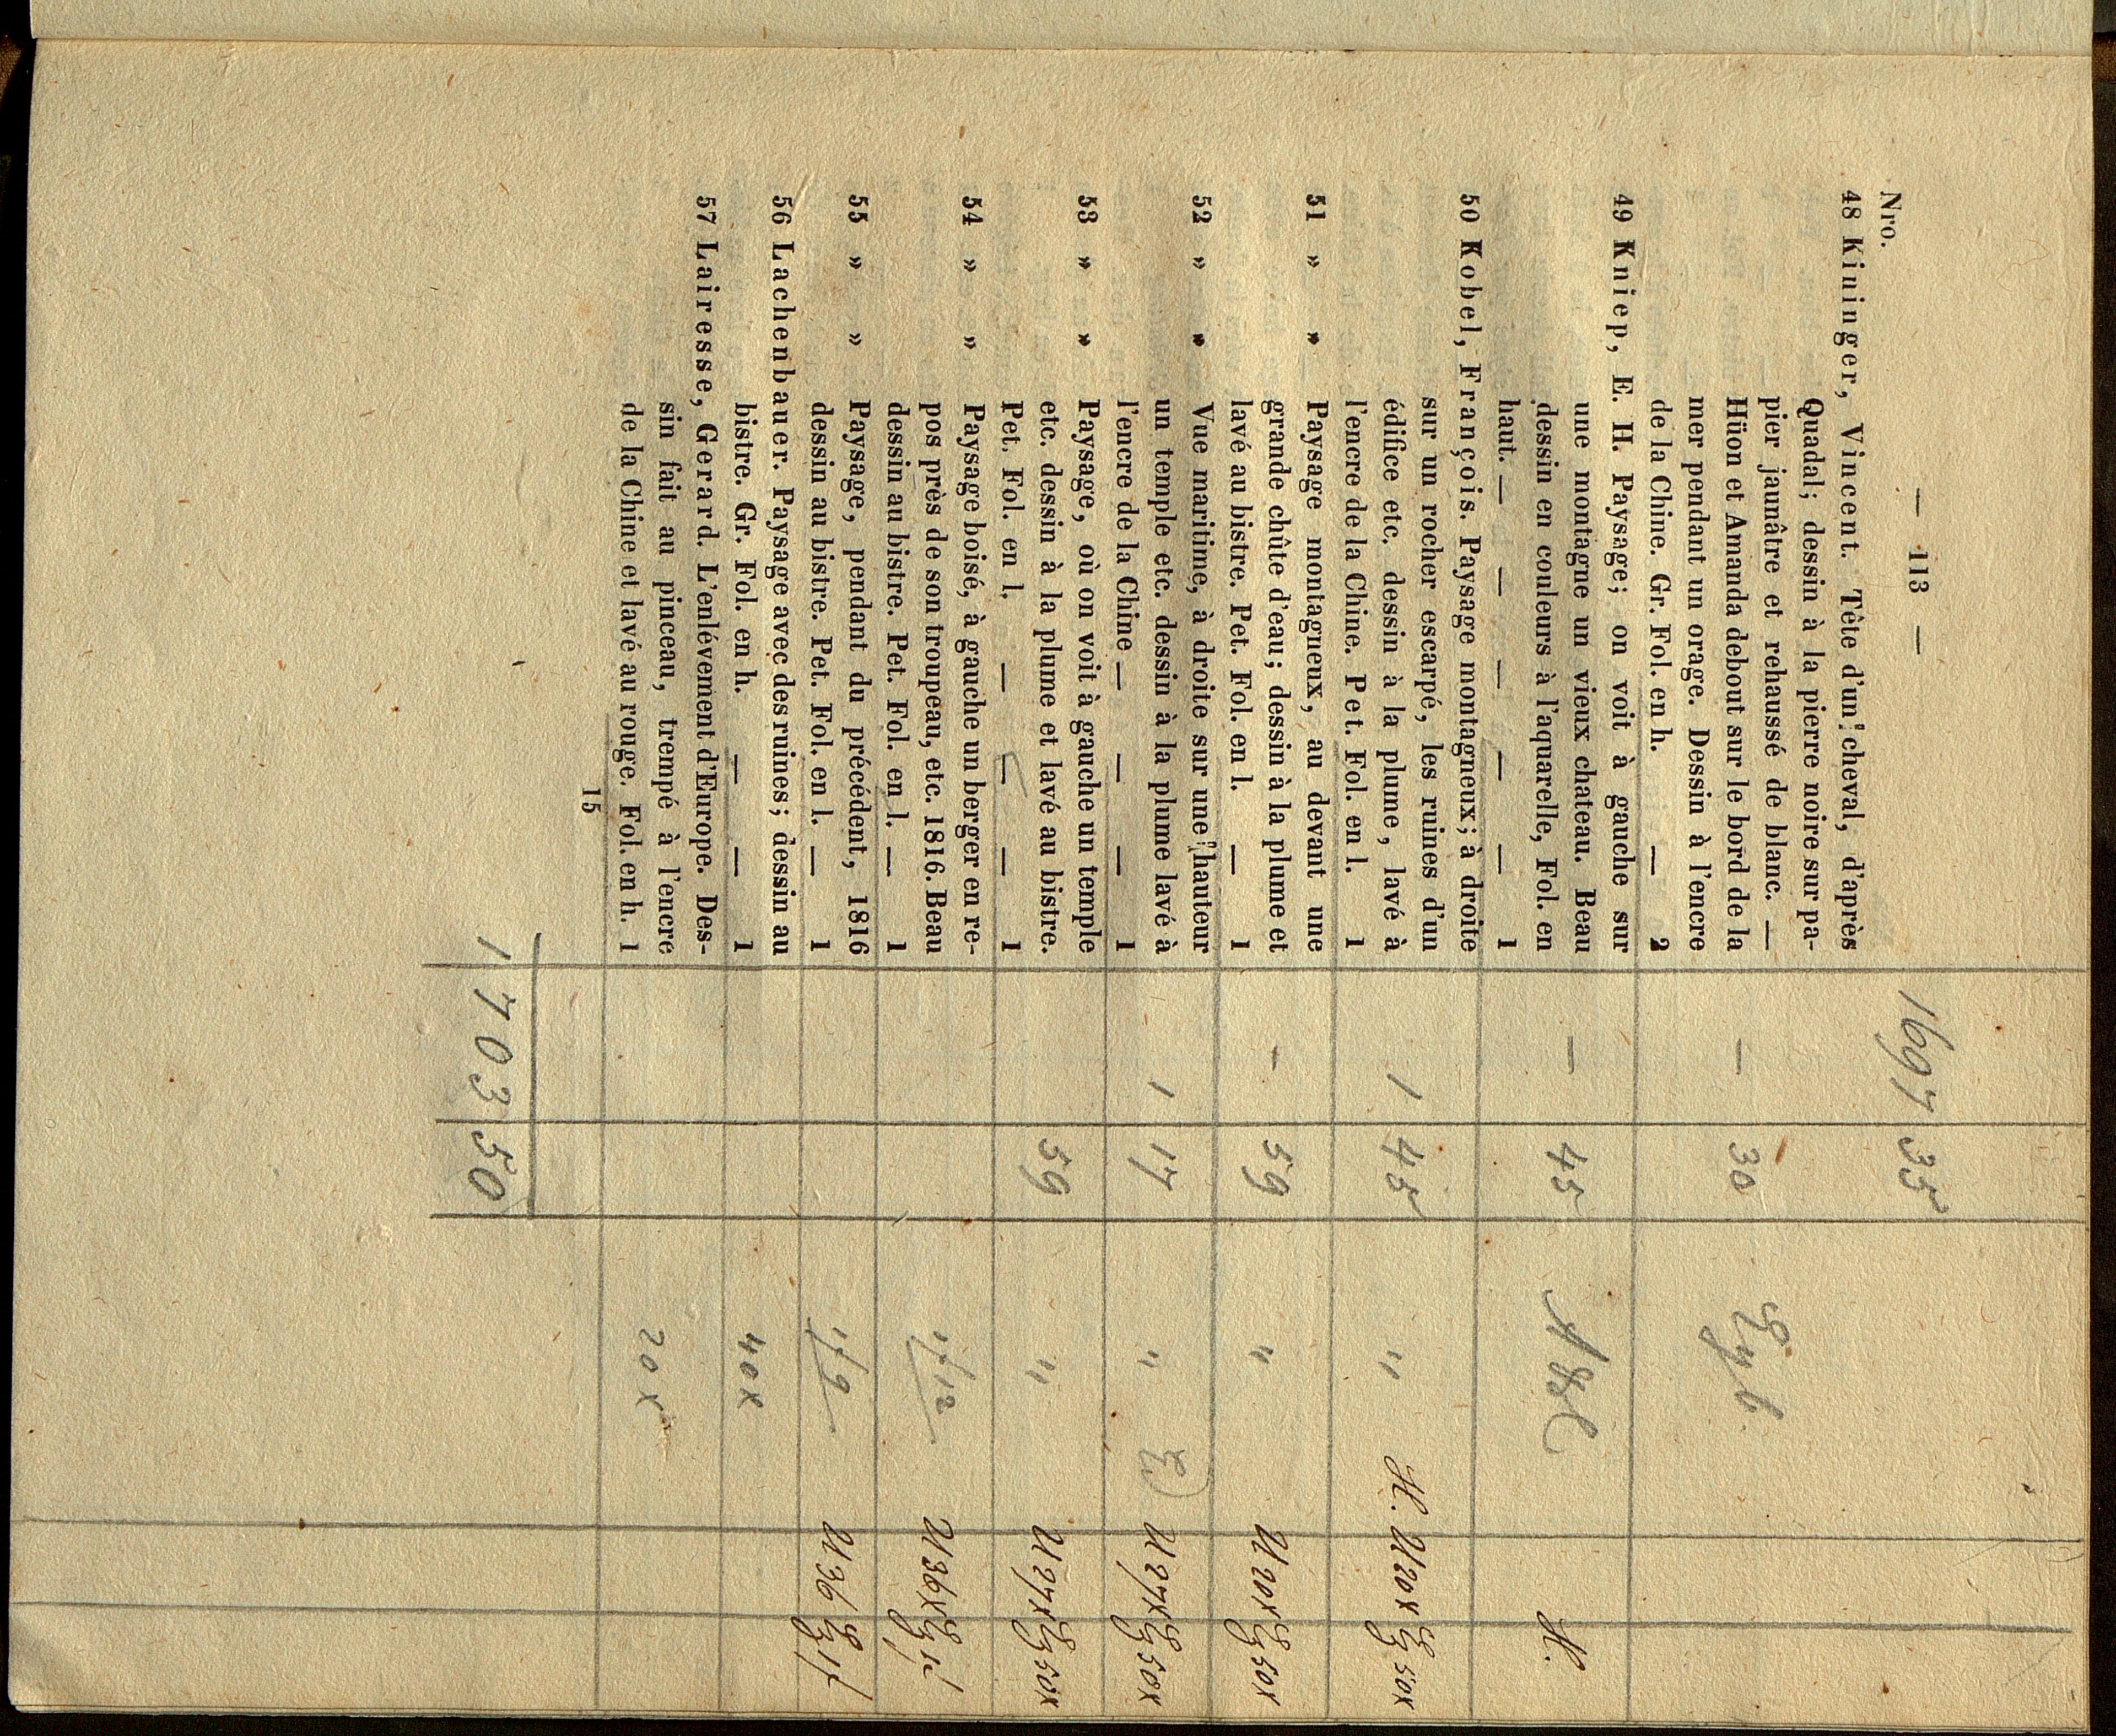 — 113 —
Nro. 1697 35
48 Kininger, Vincent. Tête d'un cheval, d'après
Quadal; dessin à la pierre noire sur pa-
pier jaunâtre et rehaussé de blanc. —
Hüon et Amanda debout sur le bord de la
mer pendant un orage. Dessin à l'encre
de la Chine. Gr. Fol. en h. — 2 — 30
49 Kniep, E. H. Paysage; on voit à gauche sur
une montagne un vieux chateau. Beau
dessin en couleurs à l'aquarelle, Fol. en
haut. — — — — — 1 — 45 H.
50 Kobel, François. Paysage montagneux; à droite
sur un rocher escarpé, les ruines d'un
édifice etc. dessin à la plume, lavé à
l'encre de la Chine. Pet. Fol. en l. 1 1 45 " H. 20x 50x
51 » » Paysage montagneux, au devant une
grande chûte d'eau; dessin à la plume et
lavé au bistre. Pet. Fol. en l. — 1 — 59 " 20x 50x
52 » » Vue maritime, à droite sur une hauteur
un temple etc. dessin à la plume lavé à
l'encre de la Chine — — — 1 1 17 " 27x 50x
53 » » Paysage, où on voit à gauche un temple
etc. dessin à la plume et lavé au bistre.
Pet. Fol. en l. — — — 1 59 " 27x 50x
54 » » Paysage boisé, à gauche un berger en re-
pos près de son troupeau, etc. 1816. Beau
dessin au bistre. Pet. Fol. en l. — 1 1f12 36x
55 » » Paysage, pendant du précédent, 1816
dessin au bistre. Pet. Fol. en l. — 1 1f9 36 1f
56 Lachenbauer. Paysage avec des ruines; dessin au
bistre. Gr. Fol. en h. — — 1 40x
57 Lairesse, Gerard. L'enlévement d'Europe. Des-
sin fait au pinceau, trempé à l'encre
de la Chine et lavé au rouge. Fol. en h. 1 20x
15
1703 50